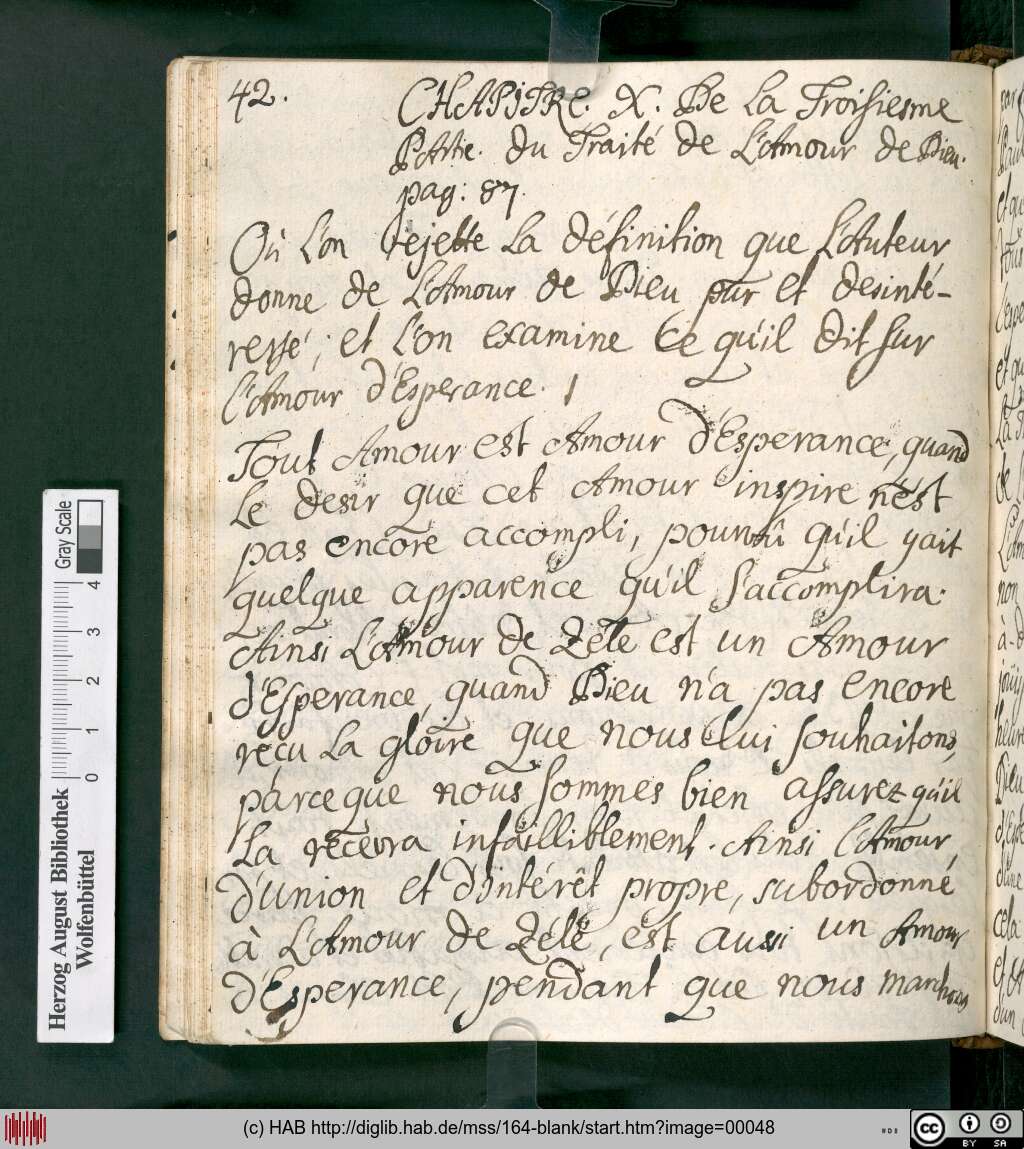 42.
CHAPITRE. X. De La Troisiesme
Partie. du Traité de L'Amour de Dieu.
pag: 87.
Où L'on rejette La définition que L'Auteur
donne de L'Amour de Dieu pur et desinté-
ressé; et L'on examine Ce qu'il dit sur
L'Amour d'Esperance.
Tout Amour est Amour d'Esperance, quand
Le desir que cet Amour inspire n'est
pas encore accompli, pourvû qu'il y ait
quelque apparence qu'il s'accomplira.
Ainsi L'Amour de Zele est un Amour
d'Esperance, quand Dieu n'a pas encore
reçu La gloire que nous lui souhaitons,
parceque nous sommes bien assurez qu'il
La recevra infailliblement. Ainsi l'Amour
d'union et d'intérêt propre, subordonné
à L'Amour de Zele, est aussi un Amour
d'Esperance, pendant que nous marchons
Gray Scale
0 1 2 3 4
Herzog August Bibliothek
Wolfenbüttel
(c) HAB http://diglib.hab.de/mss/164-blank/start.htm?image=00048
cc BY SA